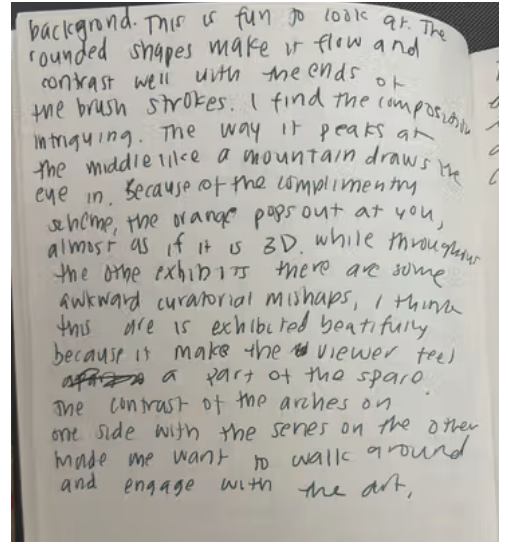 backgrond. This is fun to look at. The
rounded shapes make it flow and
contrast well with the ends of
the brush strokes. I find the composition
intriguing. The way it peaks at
the middle like a mountain draws the
eye in. Because of the complimentry
scheme, the orange pops out at you,
almost as if it is 3D. while throughout
the othe exhibits there are some
awkward curatorial mishaps, I think
this are is exhibited beatifully
because it make the viewer feel
a part of the space.
The contrast of the arches on
one side with the series on the other
made me want to walk around
and engage with the art.